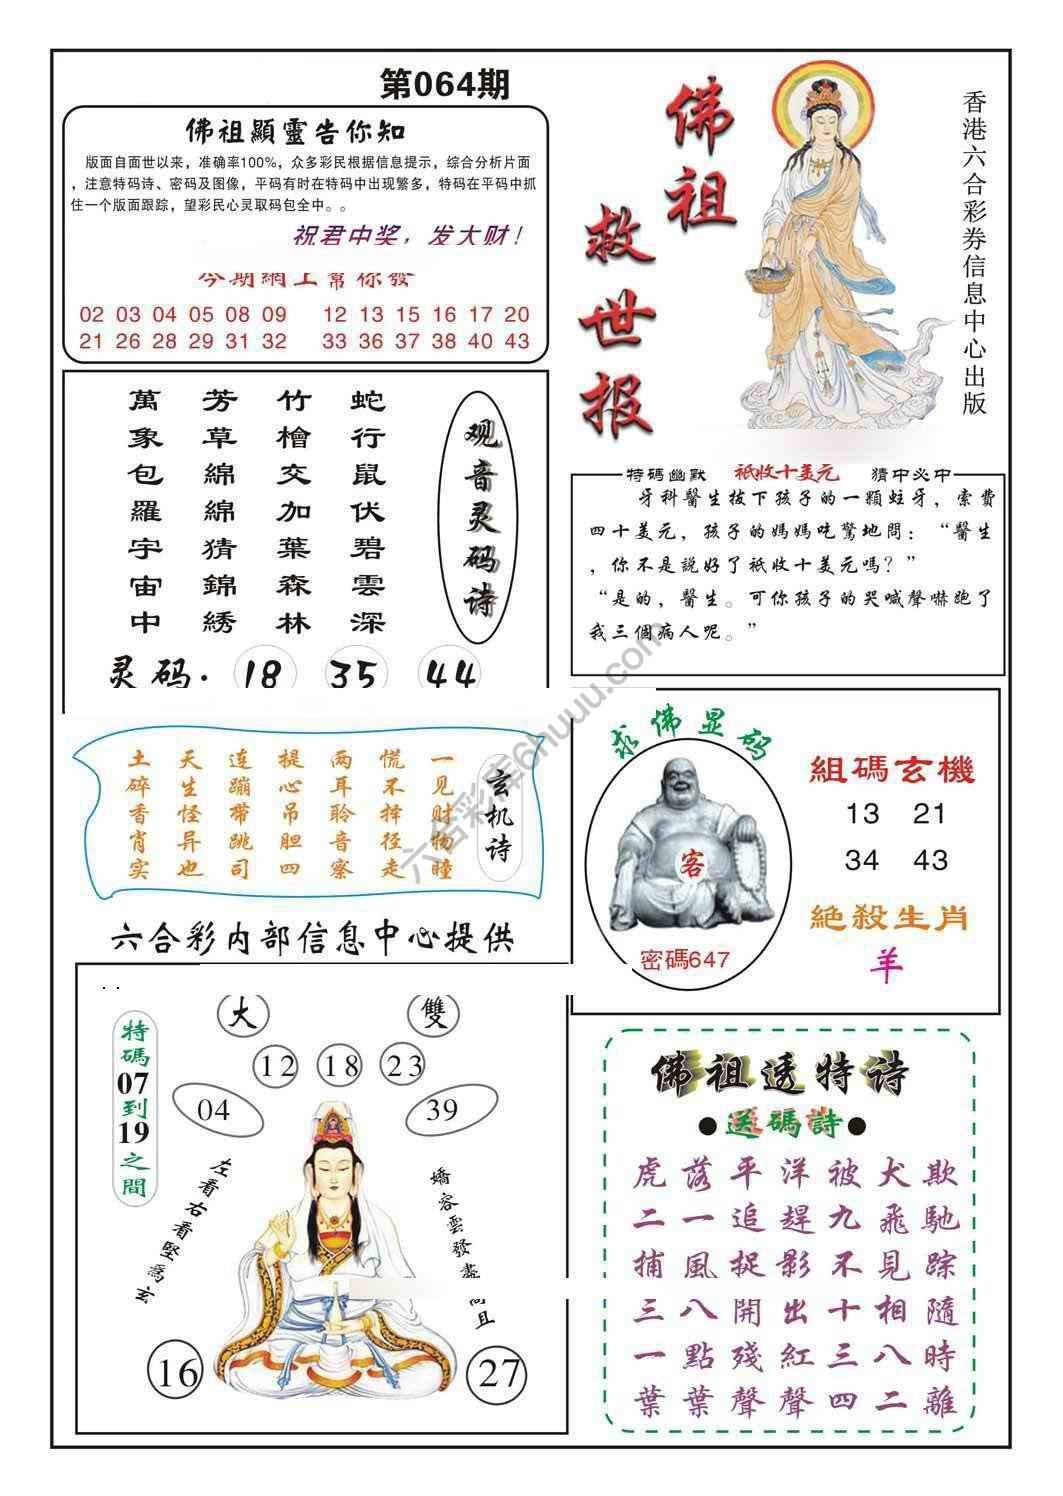 第064期
佛祖顯靈告你知
版面自面世以来，准确率100%，众多彩民根据信息提示，综合分析片面
，注意特码诗、密码及图像，平码有时在特码中出现繁多，特码在平码中抓
住一个版面跟踪，望彩民心灵取码包全中。。
祝君中奖，发大财！
今期網上幫你發
02 03 04 05 08 09 12 13 15 16 17 20
21 26 28 29 31 32 33 36 37 38 40 43
佛祖救世报
香港六合彩券信息中心出版
蛇行鼠伏碧雲深
竹檜交加葉森林
芳草綿綿猜錦綉
萬象包羅宇宙中
观音灵码诗
灵码．18 35 44
特碼幽默 祇收十美元 猜中必中
牙科醫生拔下孩子的一顆蛀牙，索費
四十美元，孩子的媽媽吃驚地問：“醫生
，你不是說好了祇收十美元嗎？”
“是的，醫生。可你孩子的哭喊聲嚇跑了
我三個病人呢。”
玄机诗
一见财物瞳
慌不择径走
两耳聆音察
提心吊胆四
连蹦带跳司
天生怪异也
土碎香肖实
求佛显码
客
密碼647
組碼玄機
13 21
34 43
絕殺生肖
羊
六合彩内部信息中心提供
特碼07到19之間
大 雙
12 18 23
04 39
左看右看堅爲玄
嬌容雲發盡
且
16 27
佛祖透特诗
●送碼詩●
虎落平洋被犬欺
二一追趕九飛馳
捕風捉影不見踪
三八開出十相隨
一點殘紅三八時
葉葉聲聲四二離
六合彩库6huuu.com